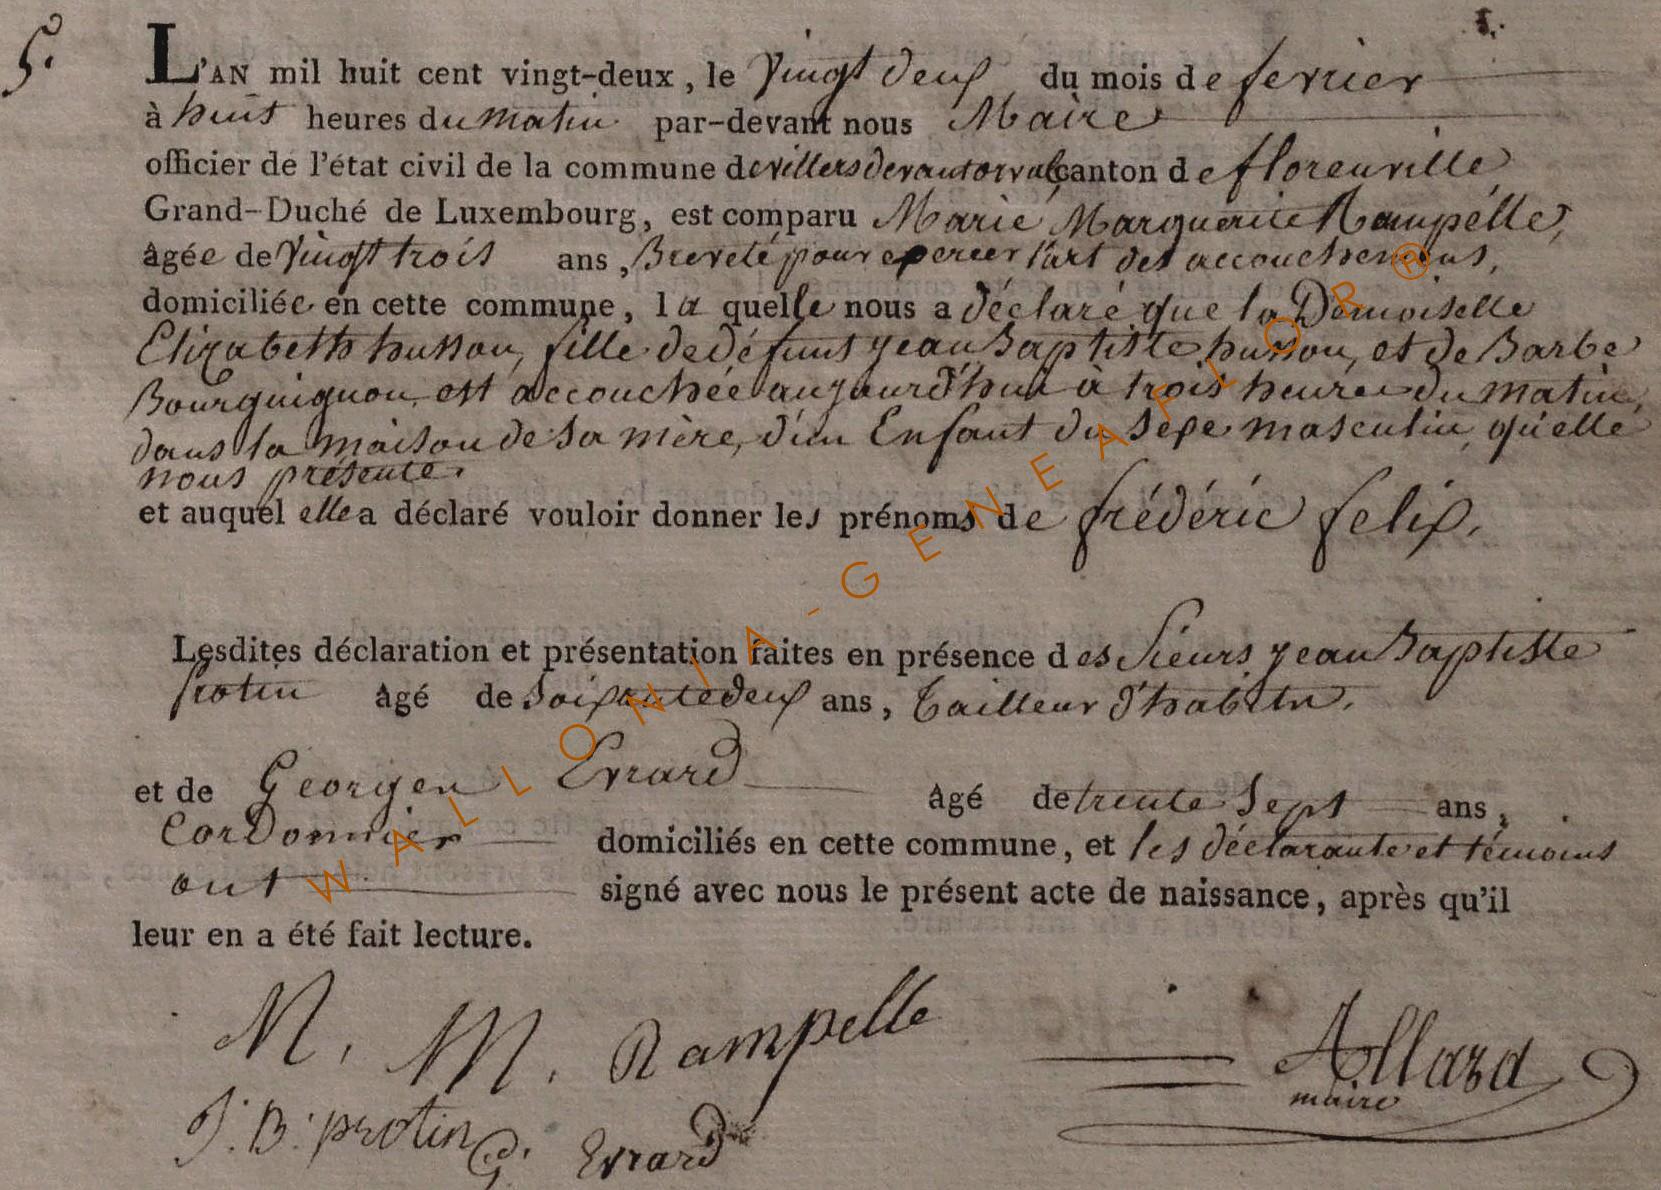 5.
L'AN mil huit cent vingt-deux, le vingt deux du mois de fevrier
à huit heures du matin par-devant nous Maire
officier de l'état civil de la commune de villers devant orval canton de florenville
Grand-Duché de Luxembourg, est comparu Marie Marguerite Rampelle,
âgée de vingt trois ans, Breveté pour exercer l'art des accouchemens,
domiciliée en cette commune, la quelle nous a déclaré que la Demoiselle
Elizabeth husson, fille de défunt jean Baptiste husson, et de Barbe
Bourguignon, est accouchée aujourd'hui à trois heures du matin,
dans la maison de sa mère, d'un Enfant du sexe masculin, qu'elle
nous présente.
et auquel elle a déclaré vouloir donner les prénoms de frédéric felix.
Lesdites déclaration et présentation faites en présence des Sieurs jean Baptiste
protin âgé de Soixante deux ans, tailleur d'habits.
et de Georges Evrard âgé de trente Sept ans,
Cordonnier domiciliés en cette commune, et les déclarante et témoins
ont signé avec nous le présent acte de naissance, après qu'il
leur en a été fait lecture.
M. M. Rampelle
Allard
maire
J. B. protin
G. Evrard
WALLONIA-GENEAFLOR®